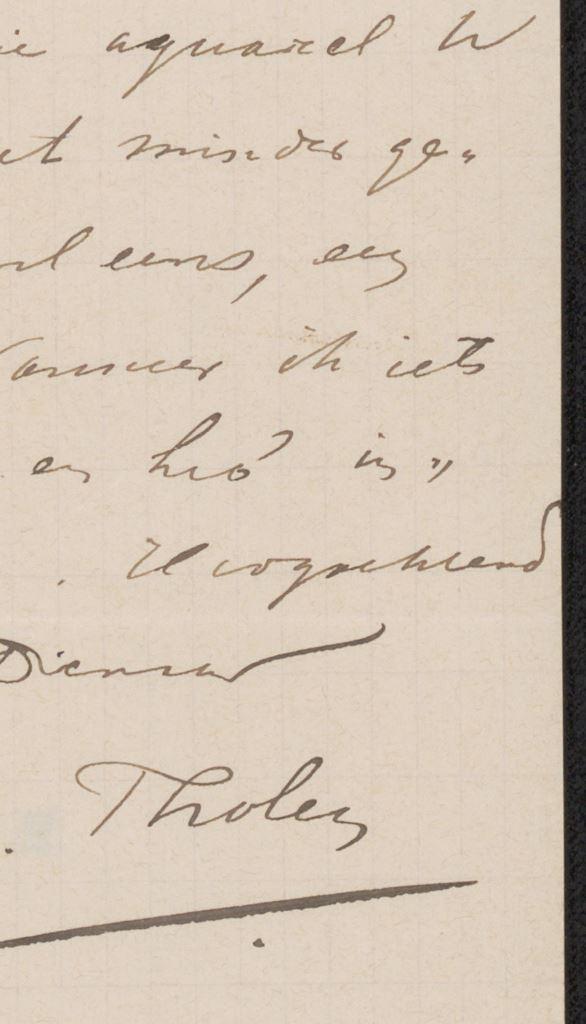 ie aquarel U
et minder ge„
el eens, en
Wanneer ik iets
en heb in„
. Hoogachtend
Dienaar
Tholen